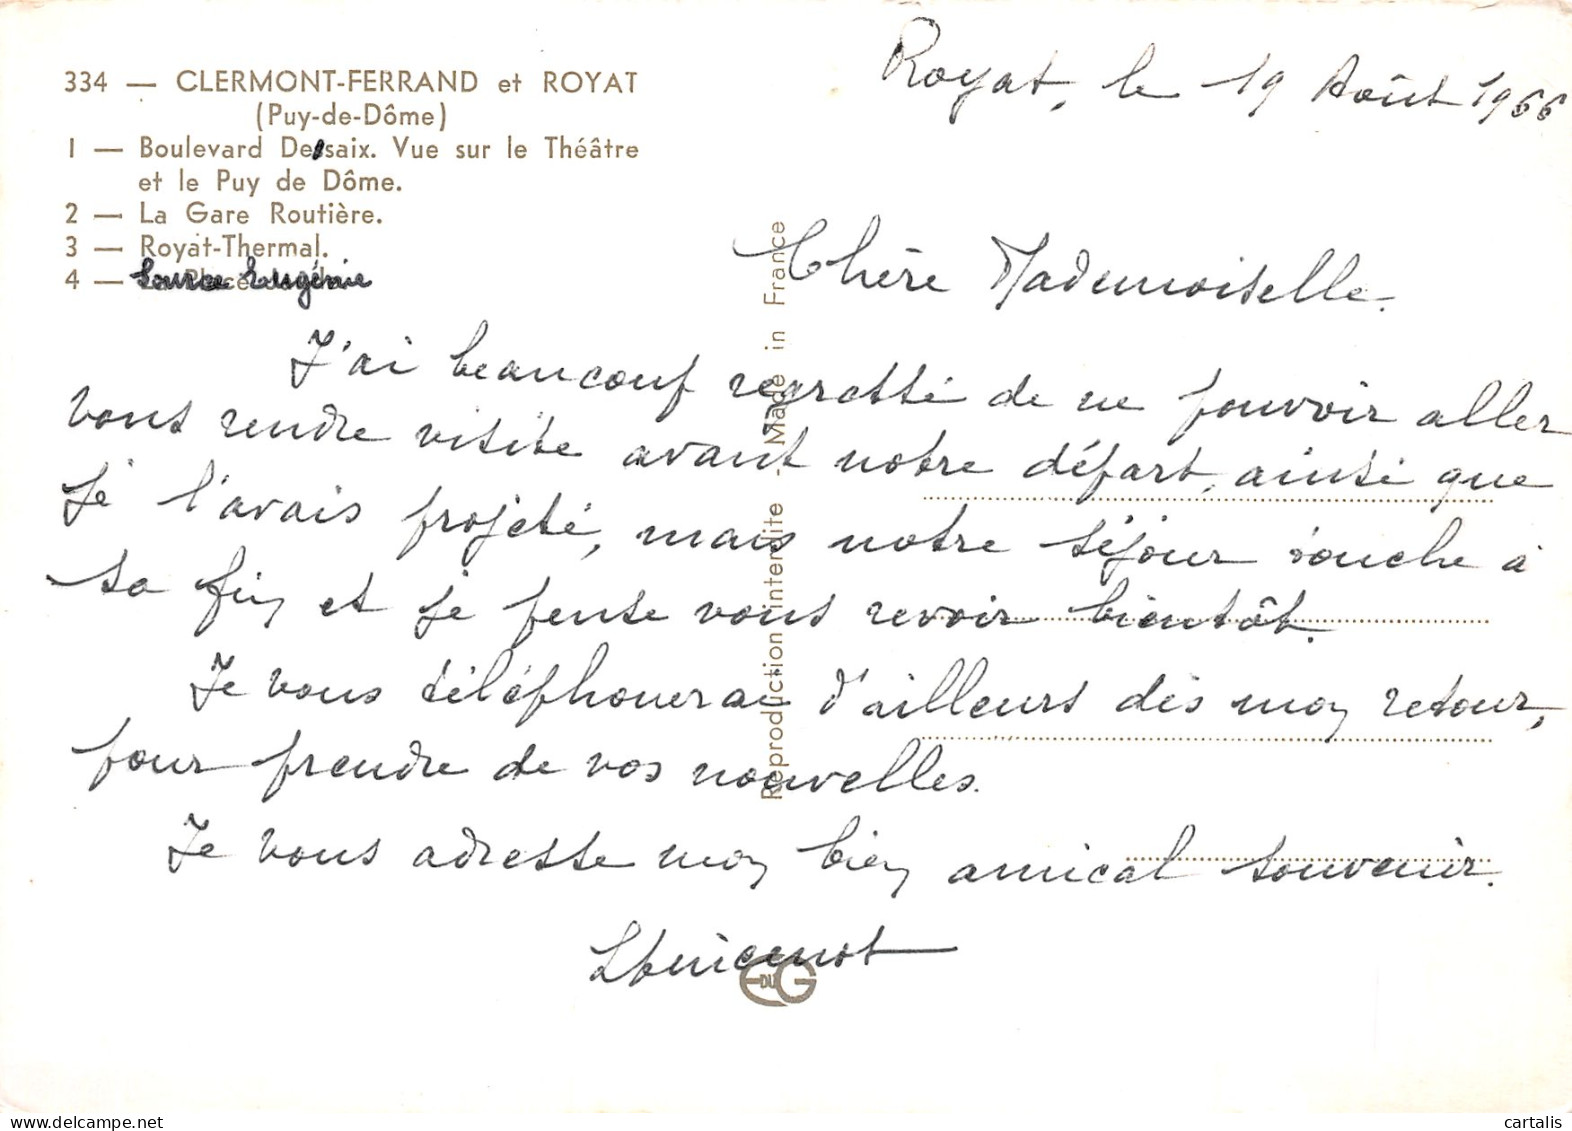 334 — CLERMONT-FERRAND et ROYAT
(Puy-de-Dôme)
1 — Boulevard Desaix. Vue sur le Théâtre
et le Puy de Dôme.
2 — La Gare Routière.
3 — Royat-Thermal.
4 — Source Eugénie
Royat, le 19 Août 1966
Chère Mademoiselle.
J'ai beaucoup regretté de ne pouvoir aller
vous rendre visite avant notre départ, ainsi que
je l'avais projeté, mais notre séjour touche à
sa fin et je pense vous revoir bientôt.
Je vous téléphonerai d'ailleurs dès mon retour,
pour prendre de vos nouvelles.
Je vous adresse mon bien amical souvenir.
Reproduction interdite - Made in France
E DU G
cartalis